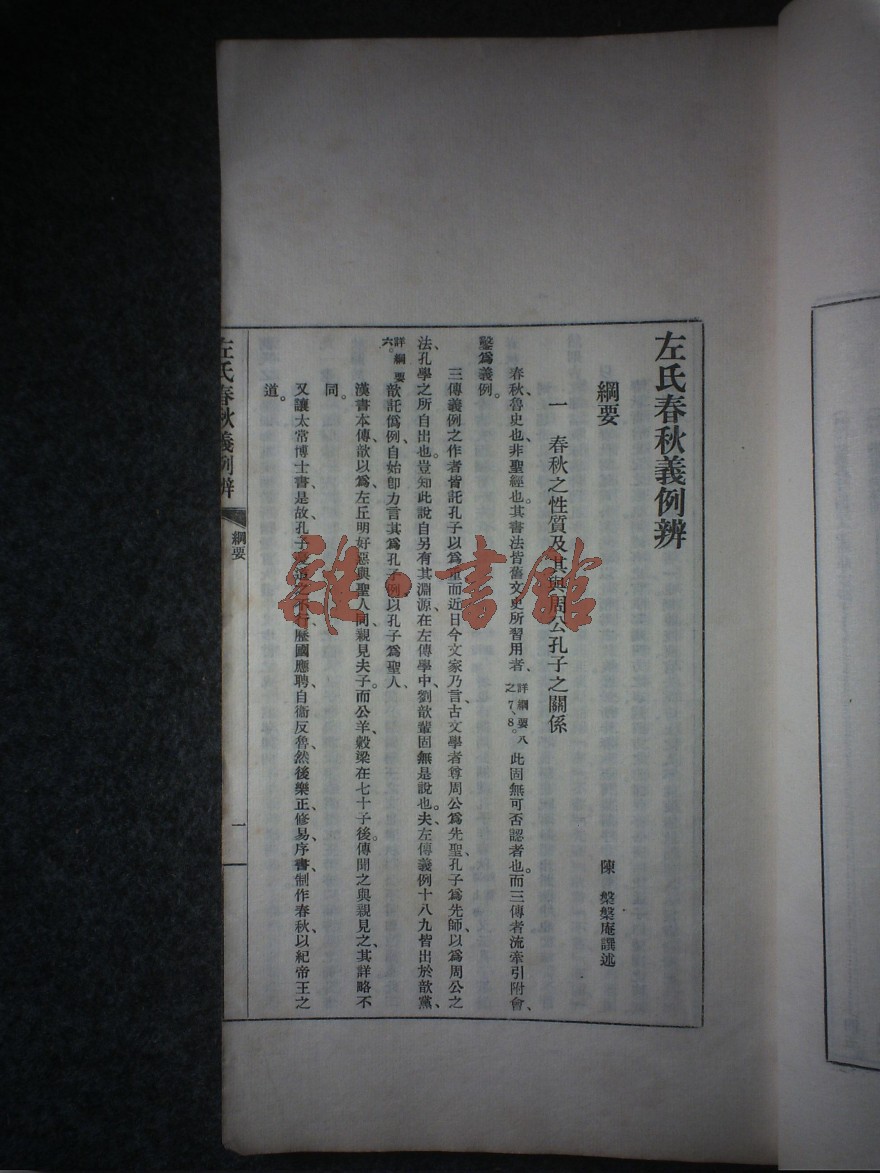 左氏春秋義例辨
陳槃槃庵譔述
綱要
一 春秋之性質及其與周公孔子之關係
春秋、魯史也、非聖經也。其書法皆舊文史所習用者、詳綱要八之7、8。此固無可否認者也。而三傳者流牽引附會、
鑿爲義例。
三傳義例之作者皆託孔子以爲重而近日今文家乃言古文學者尊周公爲先聖、孔子爲先師、以爲周公之
法、孔學之所自出也。豈知此說自另有其淵源、在左傳學中、劉歆輩固無是說也。夫左傳義例十八九皆出於歆黨、
詳綱要六。歆託僞例、自始卽力言其爲孔子例、以孔子爲聖人、
漢書本傳、歆以爲左丘明好惡與聖人同、親見夫子。而公羊穀梁在七十子後。傳聞之與親見之、其詳略不
同。
又讓太常博士書、是故孔子道之不行、歷國應聘、自衞反魯、然後樂正、修易、序書、制作春秋、以紀帝王之
道。
左氏春秋義例辨
綱要
一
雜·書館